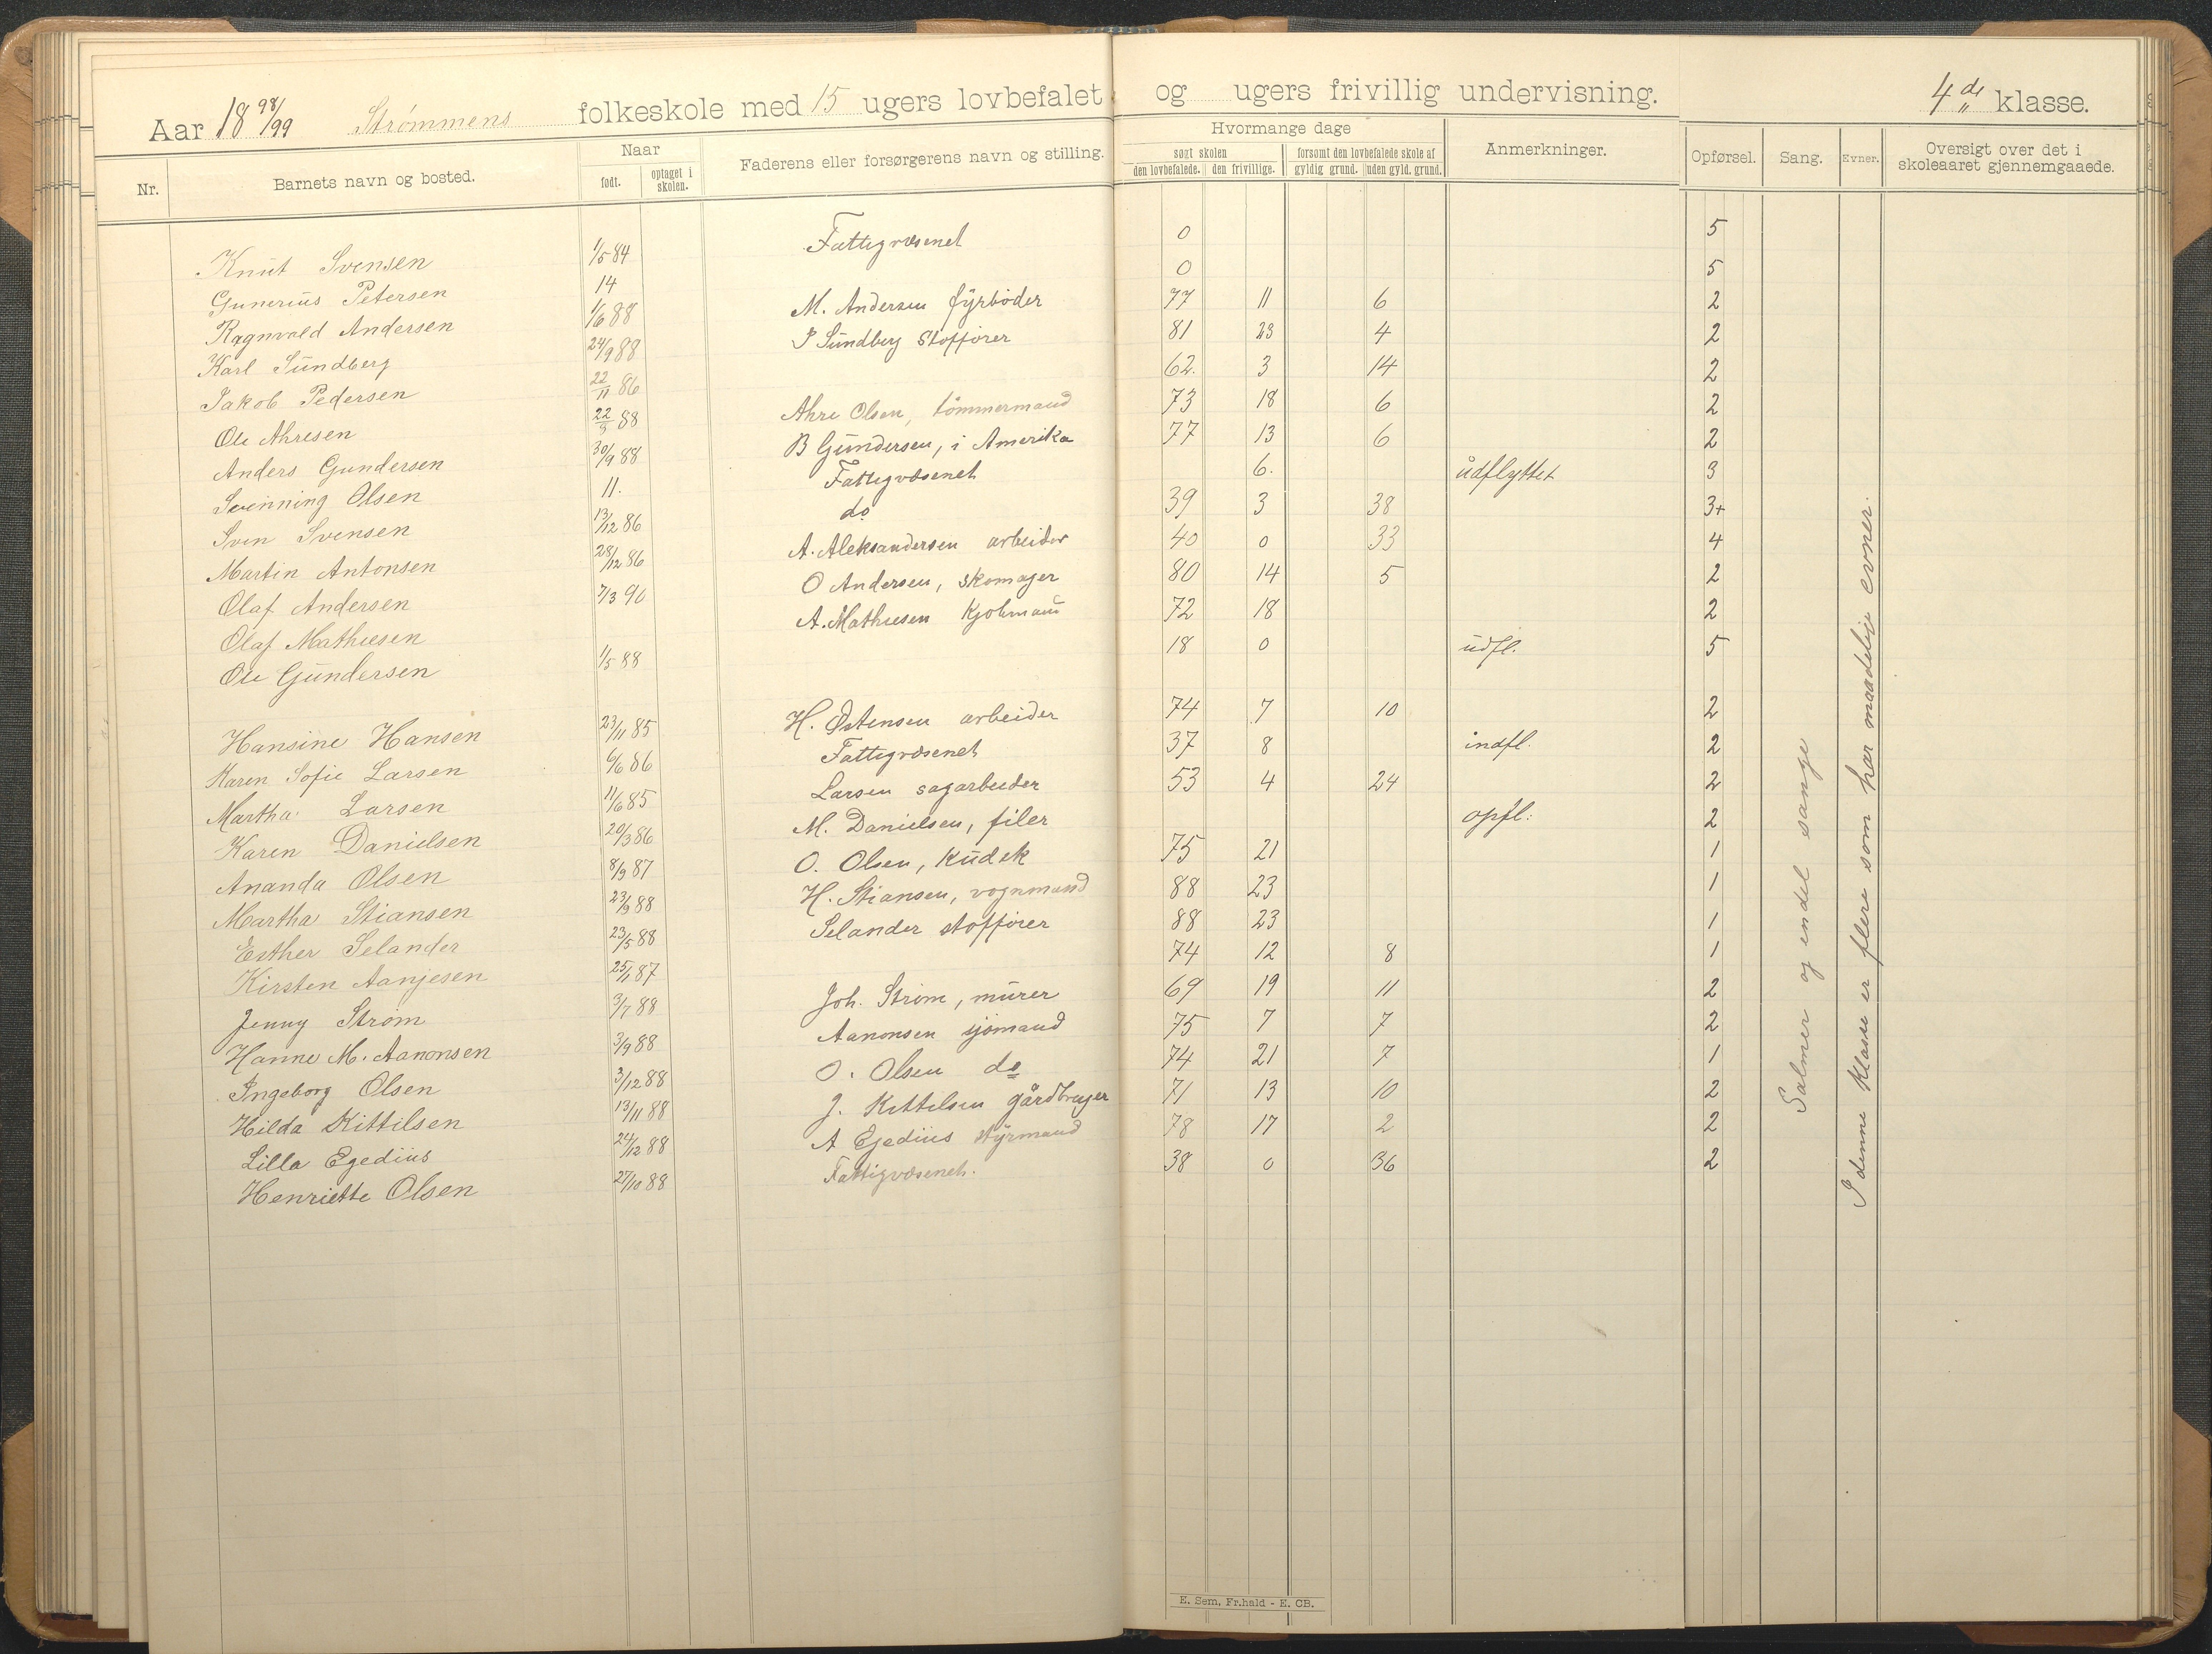 Aar 18 98/99 Strømmens folkeskole med 15 ugers lovbefalet og ugers frivillig undervisning. 4de klasse.
Nr. Barnets navn og bosted. Naar født. optaget i skolen. Faderens eller forsørgerens navn og stilling. Hvormange dage søgt skolen den lovbefalede. den frivillige. forsømt den lovbefalede skole af gyldig grund. uden gyld. grund. Anmerkninger. Opførsel. Sang. Evner. Oversigt over det i skoleaaret gjennemgaaede.
Knut Svensen 1/5 84 Fattigvæsenet 0 5
Gunerius Petersen 14 0 5
Ragnvald Andersen 1/6 88 M. Andersen fyrbøder 77 11 6 2
Karl Sundberg 24/9 88 P Sundberg Stoffører 81 23 4 2
Jakob Pedersen 22/11 86 62. 3 14 2
Ole Ahresen 22/3 88 Ahre Olsen, tømmermand 73 18 6 2
Anders Gundersen 30/9 88 B Gundersen, i Amerika 77 13 6 2
Svenning Olsen 11. Fattigvæsenet 6. udflyttet 3
Sven Svensen 13/12 86 do 39 3 38 3+
Martin Antonsen 28/12 86 A. Aleksandersen arbeider 40 0 33 4
Olaf Andersen 7/3 90 O Andersen, skomager 80 14 5 2
Olaf Mathiesen A. Mathiesen 72 18 2
Ole Gundersen 1/5 88 18 0 udfl. 5
Hansine Hansen 23/11 85 H. Østensen arbeider 74 7 10 2
Karen Sofie Larsen 6/6 86 Fattigvæsenet 37 8 indfl. 2
Martha Larsen 11/6 85 Larsen sagarbeider 53 4 24 2
Karen Danielsen 20/3 86 M. Danielsen, filer opfl: 2
Ananda Olsen 8/9 87 O. Olsen, Kudsk 75 21 1
Martha Stiansen 23/9 88 H. Stiansen, vognmand 88 23 1
Esther Selander 23/5 88 Selander stoffører 88 23 1
Kirsten Aanjesen 25/1 87 74 12 8 1
Jenny Strøm 3/7 88 Joh. Strøm, murer 69 19 11 2
Hanne M. Aanonsen 3/9 88 Aanonsen sjømand 75 7 7 2
Ingeborg Olsen 3/12 88 O. Olsen do 74 21 7 1
Hilda Kittilsen 13/11 88 J. Kittelsen gårdbruger 71 13 10 2
Lilla Egedius 24/12 88 A Egedius styrmand 78 17 2 2
Henriette Olsen 27/10 88 Fattigvæsenet. 38 0 36 2
Salmer og endel sange
I denne klasse er flere som har maadelige evner.
E. Sem, Fr.hald - E. CB.